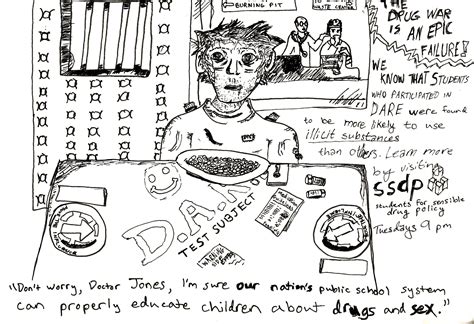 BURNING PIT
WASTE CENTER
THE
DRUG WAR
IS AN EPIC
FAILURE!!
WE
KNOW THAT STUDENTS
WHO PARTICIPATED IN
DARE were found
to be more likely to use
illicit substances
than others. Learn more
by visiting
ssdp
students for sensible
drug policy
Tuesdays 9 pm
D.A.R.E
TEST SUBJECT
"Don't worry, Doctor Jones, I'm sure our nation's public school system
can properly educate children about drugs and sex."